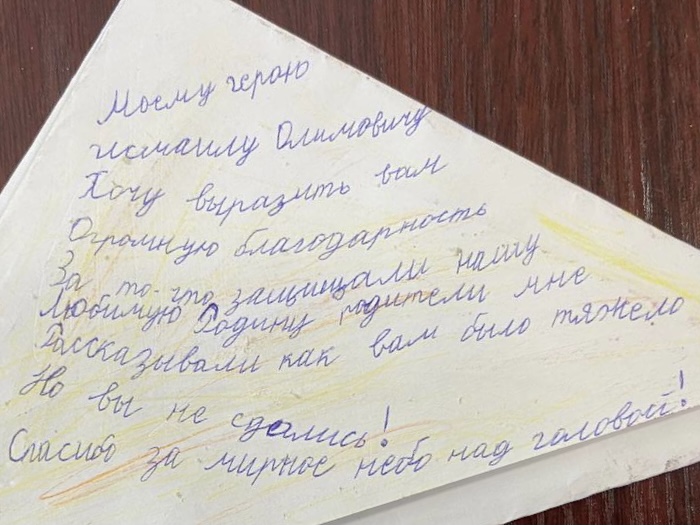 Моему герою
исмаилу Олимовичу
Хочу выразить вам
Огромную благодарность
За то что защищали нашу
любимую Родину родители мне
Рассказывали как вам было тяжело
Но вы не сдались!
Спасибо за мирное небо над головой!